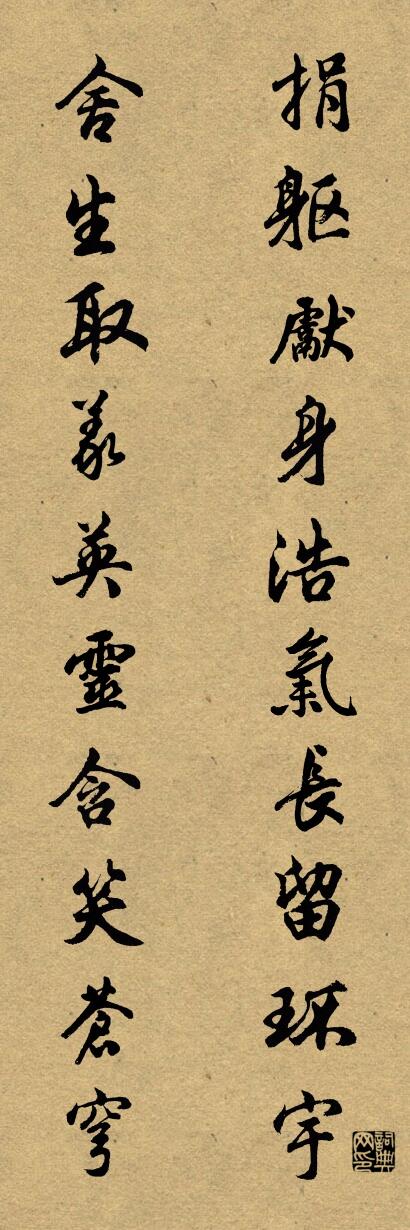 捐軀獻身浩氣長留環宇
舍生取義英靈含笑蒼穹
詞典網印